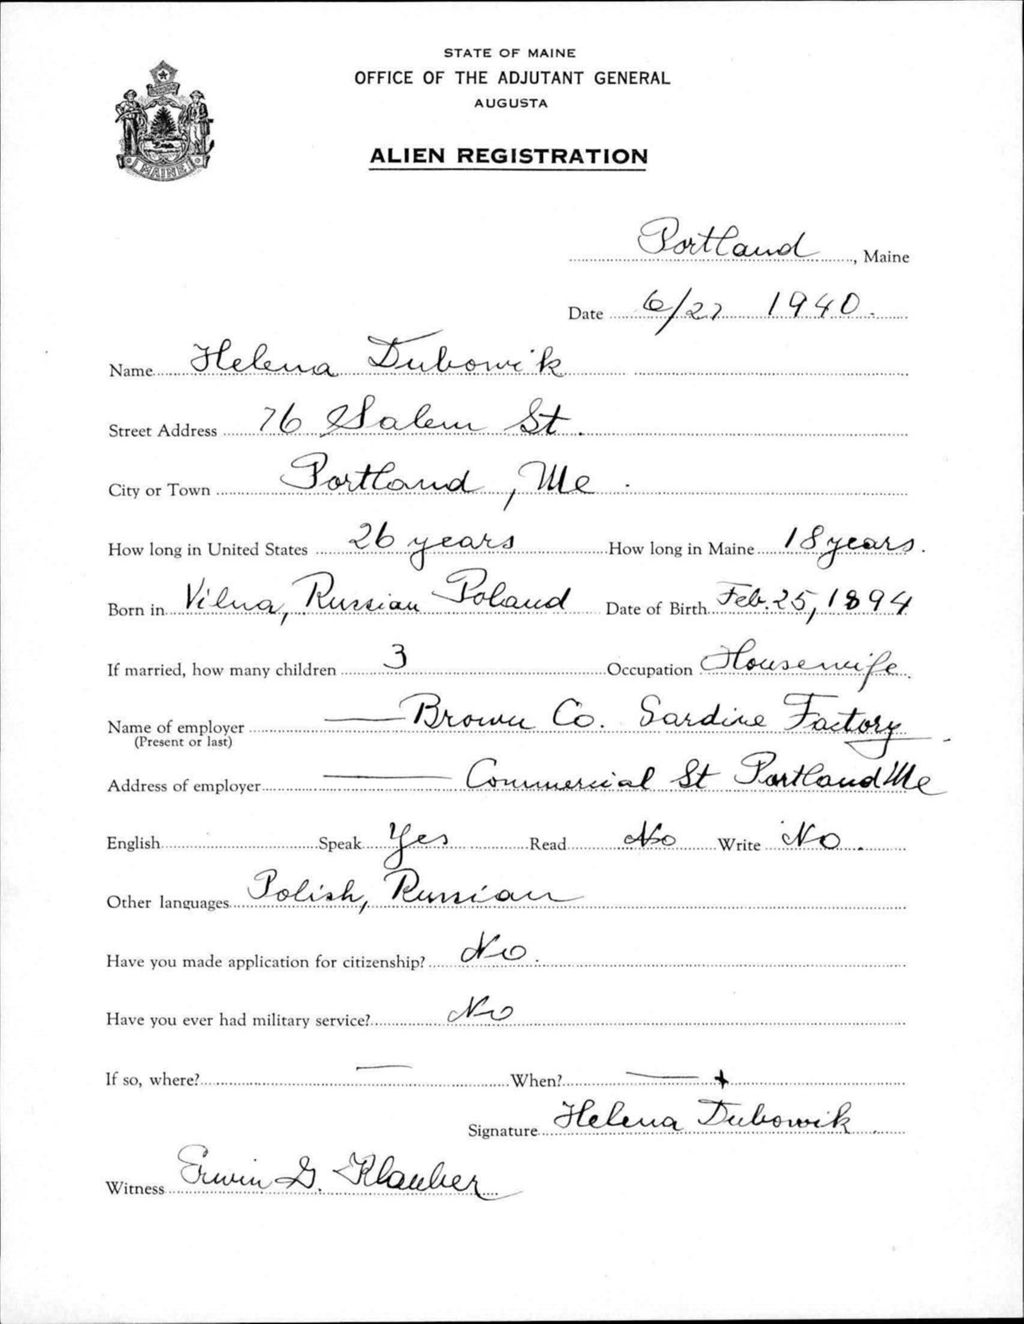 STATE OF MAINE
OFFICE OF THE ADJUTANT GENERAL
AUGUSTA
ALIEN REGISTRATION
MAINE
Portland, Maine
Date 6/27 1940.
Name Helena Dubowik
Street Address 76 Salem St.
City or Town Portland, Me.
How long in United States 26 years How long in Maine 18 years.
Born in Vilna, Russian Poland Date of Birth Feb. 25, 1894
If married, how many children 3 Occupation Housewife
Name of employer — Brown Co. Sardine Factory
(Present or last)
Address of employer — Commercial St Portland Me
English Speak Yes Read No Write No.
Other languages Polish, Russian
Have you made application for citizenship? No.
Have you ever had military service? No
If so, where? — When? —
Signature Helena Dubowik
Witness Erwin G. Klauber